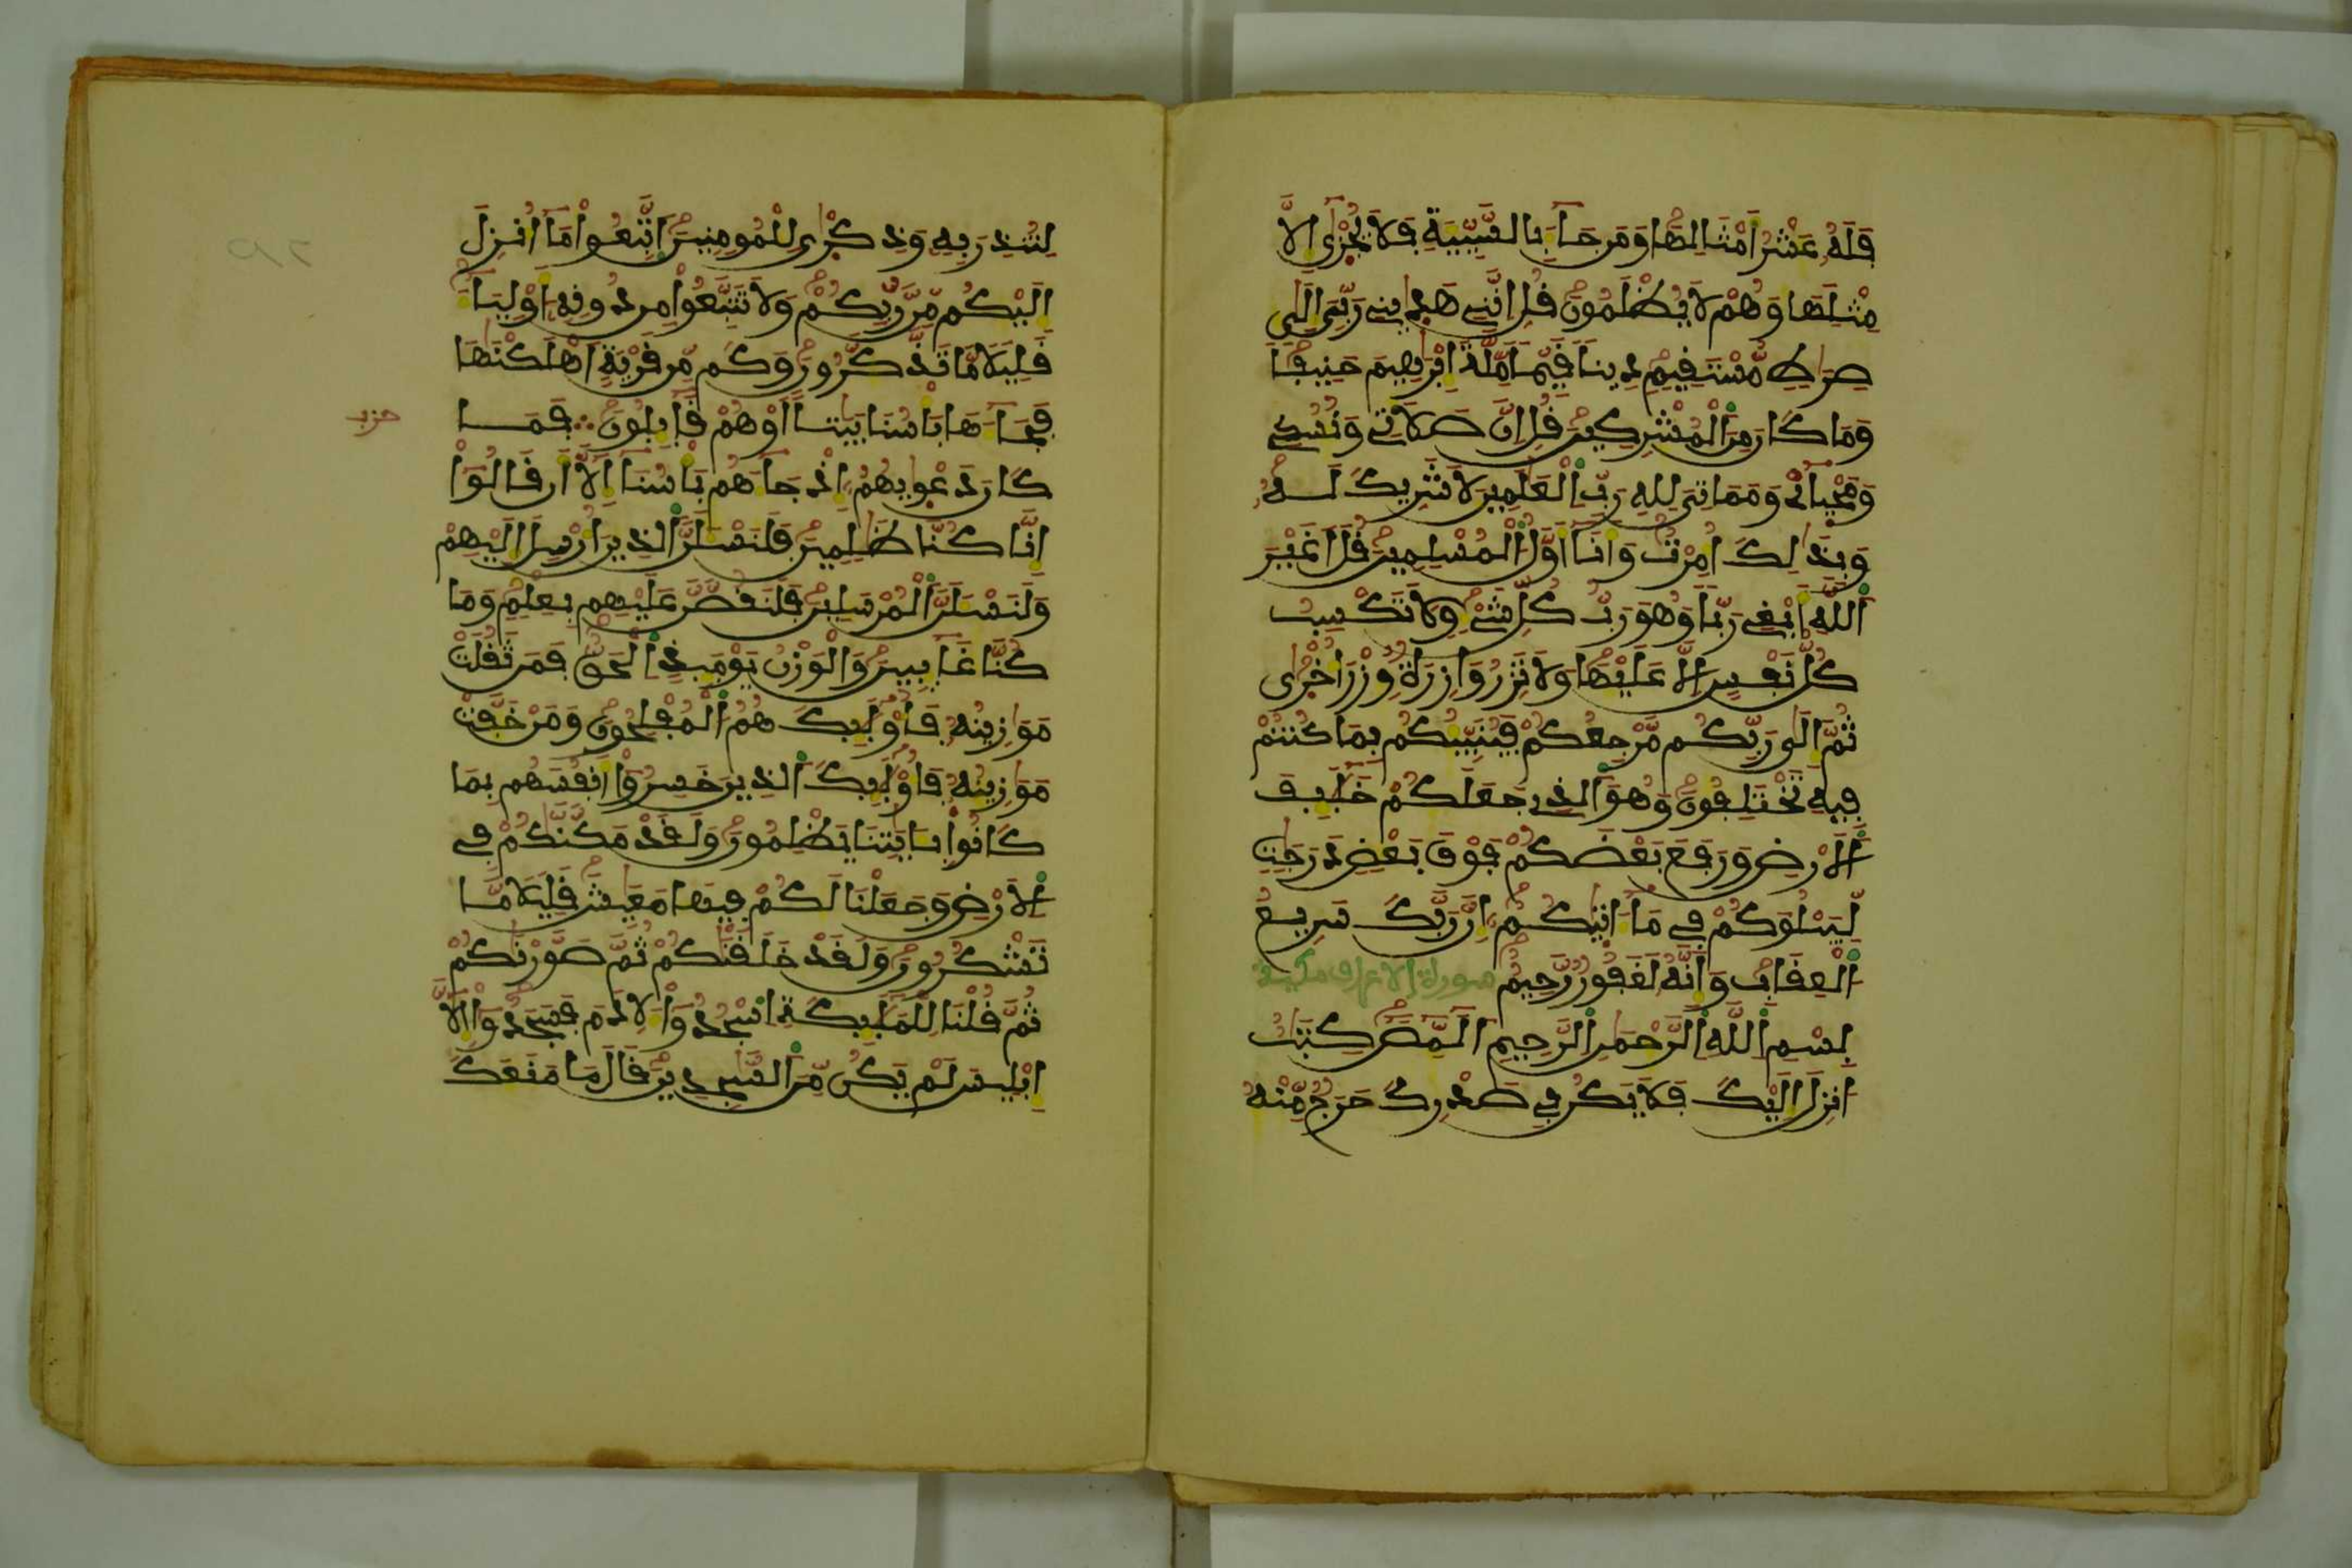 فَلَهُ عَشْرُ أَمْثَالِهَا وَمَن جَآءَ بِالسَّيِّئَةِ فَلَا يُجْزَىٰ إِلَّا
مِثْلَهَا وَهُمْ لَا يُظْلَمُونَ قُلِ انَّنِي هَدَىٰنِي رَبِّيَ إِلَىٰ
صِرَٰطٍ مُّسْتَقِيمٍ دِينًا قَيِّمًا مِّلَّةَ إِبْرَٰهِيمَ حَنِيفًا
وَمَا كَانَ مِنَ ٱلْمُشْرِكِينَ قُلِ انَّ صَلَاتِي وَنُسُكِي
وَمَحْيَايْ وَمَمَاتِيَ لِلهِ رَبِّ ٱلْعَٰلَمِينَ لَا شَرِيكَ لَهُ
وَبِذَٰلِكَ أُمِرْتُ وَأَنَآ أَوَّلُ ٱلْمُسْلِمِينَ قُلَ اغَيْرَ
ٱللَّهِ أَبْغِي رَبًّا وَهُوَ رَبُّ كُلِّ شَيْءٍ وَلَا تَكْسِبُ
كُلُّ نَفْسٍ إِلَّا عَلَيْهَا وَلَا تَزِرُ وَازِرَةٌ وِزْرَ أُخْرَىٰ
ثُمَّ إِلَىٰ رَبِّكُم مَّرْجِعُكُمْ فَيُنَبِّئُكُم بِمَا كُنتُمْ
فِيهِ تَخْتَلِفُونَ وَهُوَ ٱلذِي جَعَلَكُمْ خَلَٰٓئِفَ
ٱلَارْضِ وَرَفَعَ بَعْضَكُمْ فَوْقَ بَعْضٍ دَرَجَٰتٍ
لِّيَبْلُوَكُمْ فِي مَآ ءَاتَىٰكُمُ إِنَّ رَبَّكَ سَرِيعُ
ٱلْعِقَابِ وَإِنَّهُ لَغَفُورٌ رَّحِيمٌ سورة الاعراف مكية
بِسْمِ ٱللَّهِ ٱلرَّحْمَٰنِ ٱلرَّحِيمِ أَلَٓمِّٓصَٓ كِتَٰبٌ
انزِلَ إِلَيْكَ فَلَا يَكُن فِي صَدْرِكَ حَرَجٌ مِّنْهُ
لِتُنذِرَ بِهِ وَذِكْرَىٰ لِلْمُومِنِينَ اَتَّبِعُوا مَآ أُنزِلَ
إِلَيْكُم مِّن رَّبِّكُمْ وَلَا تَتَّبِعُوا مِن دُونِهِ أَوْلِيَآءَ
قَلِيلًا مَّا تَذَّكَّرُونَ وَكَم مِّن قَرْيَةٍ أَهْلَكْنَٰهَا
فَجَآءَهَا بَأْسُنَا بَيَٰتًا أَوْ هُمْ قَآئِلُونَ ∴ فَمَا
حزب
كَانَ دَعْوَىٰهُمُ إِذْ جَآءَهُم بَأْسُنَآ إِلَّآ أَن قَالُوٓا
إِنَّا كُنَّا ظَٰلِمِينَ فَلَنَسْـَٔلَنَّ ٱلذِينَ أُرْسِلَ إِلَيْهِمْ
وَلَنَسْـَٔلَنَّ ٱلْمُرْسَلِينَ فَلَنَقُصَّنَّ عَلَيْهِم بِعِلْمٍ وَمَا
كُنَّا غَآئِبِينَ وَالْوَزْنُ يَوْمَئِذٍ ٱلْحَقُّ فَمَن ثَقُلَتْ
مَوَٰزِينُهُ فَأُوْلَٰٓئِكَ هُمُ ٱلْمُفْلِحُونَ وَمَنْ خَفَّتْ
مَوَٰزِينُهُ فَأُوْلَٰٓئِكَ ٱلذِينَ خَسِرُوٓا أَنفُسَهُم بِمَا
كَانُوا بِـَٔايَٰتِنَا يَظْلِمُونَ وَلَقَدْ مَكَّنَّٰكُمْ فِي
ٱلَارْضِ وَجَعَلْنَا لَكُمْ فِيهَا مَعَٰيِشَ قَلِيلًا مَّا
تَشْكُرُونَ وَلَقَدْ خَلَقْنَٰكُمْ ثُمَّ صَوَّرْنَٰكُمْ
ثُمَّ قُلْنَا لِلْمَلَٰٓئِكَةِ اسْجُدُوا لِأَدَمَ فَسَجَدُوٓا إِلَّآ
إِبْلِيسَ لَمْ يَكُن مِّنَ ٱلسَّٰجِدِينَ قَالَ مَا مَنَعَكَ